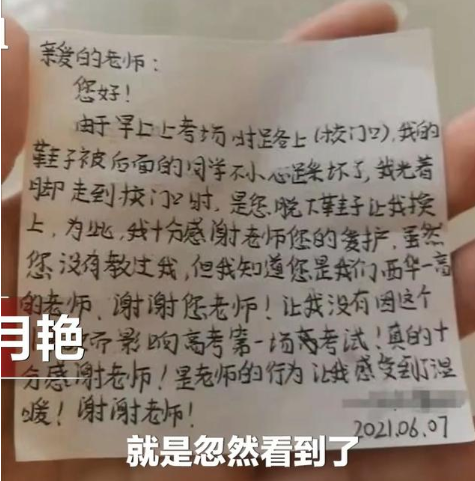 亲爱的老师:
您好!
由于早上上考场时路上(校门口),我的
鞋子被后面的同学不小心踩坏了,我光着
脚走到校门口时,是您脱下鞋子让我换
上,为此,我十分感谢老师您的爱护,虽然
您没有教过我,但我知道您是我们西华一高
的老师,谢谢您老师!让我没有因这个
而影响高考第一场考试!真的十
分感谢老师!是老师的行为让我感受到了温
暖!谢谢老师!
2021.06.07
月艳
就是忽然看到了